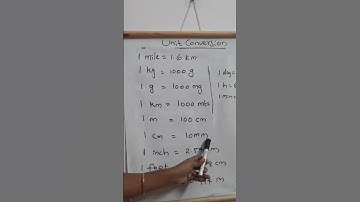 Unit Conversion
1 mile = 1.6 km
1 kg = 1000 g
1 g = 1000 mg
1 km = 1000 mts
1 m = 100 cm
1 cm = 10mm
1 inch = 2
1 foot cm
m
1 day=
1 h=